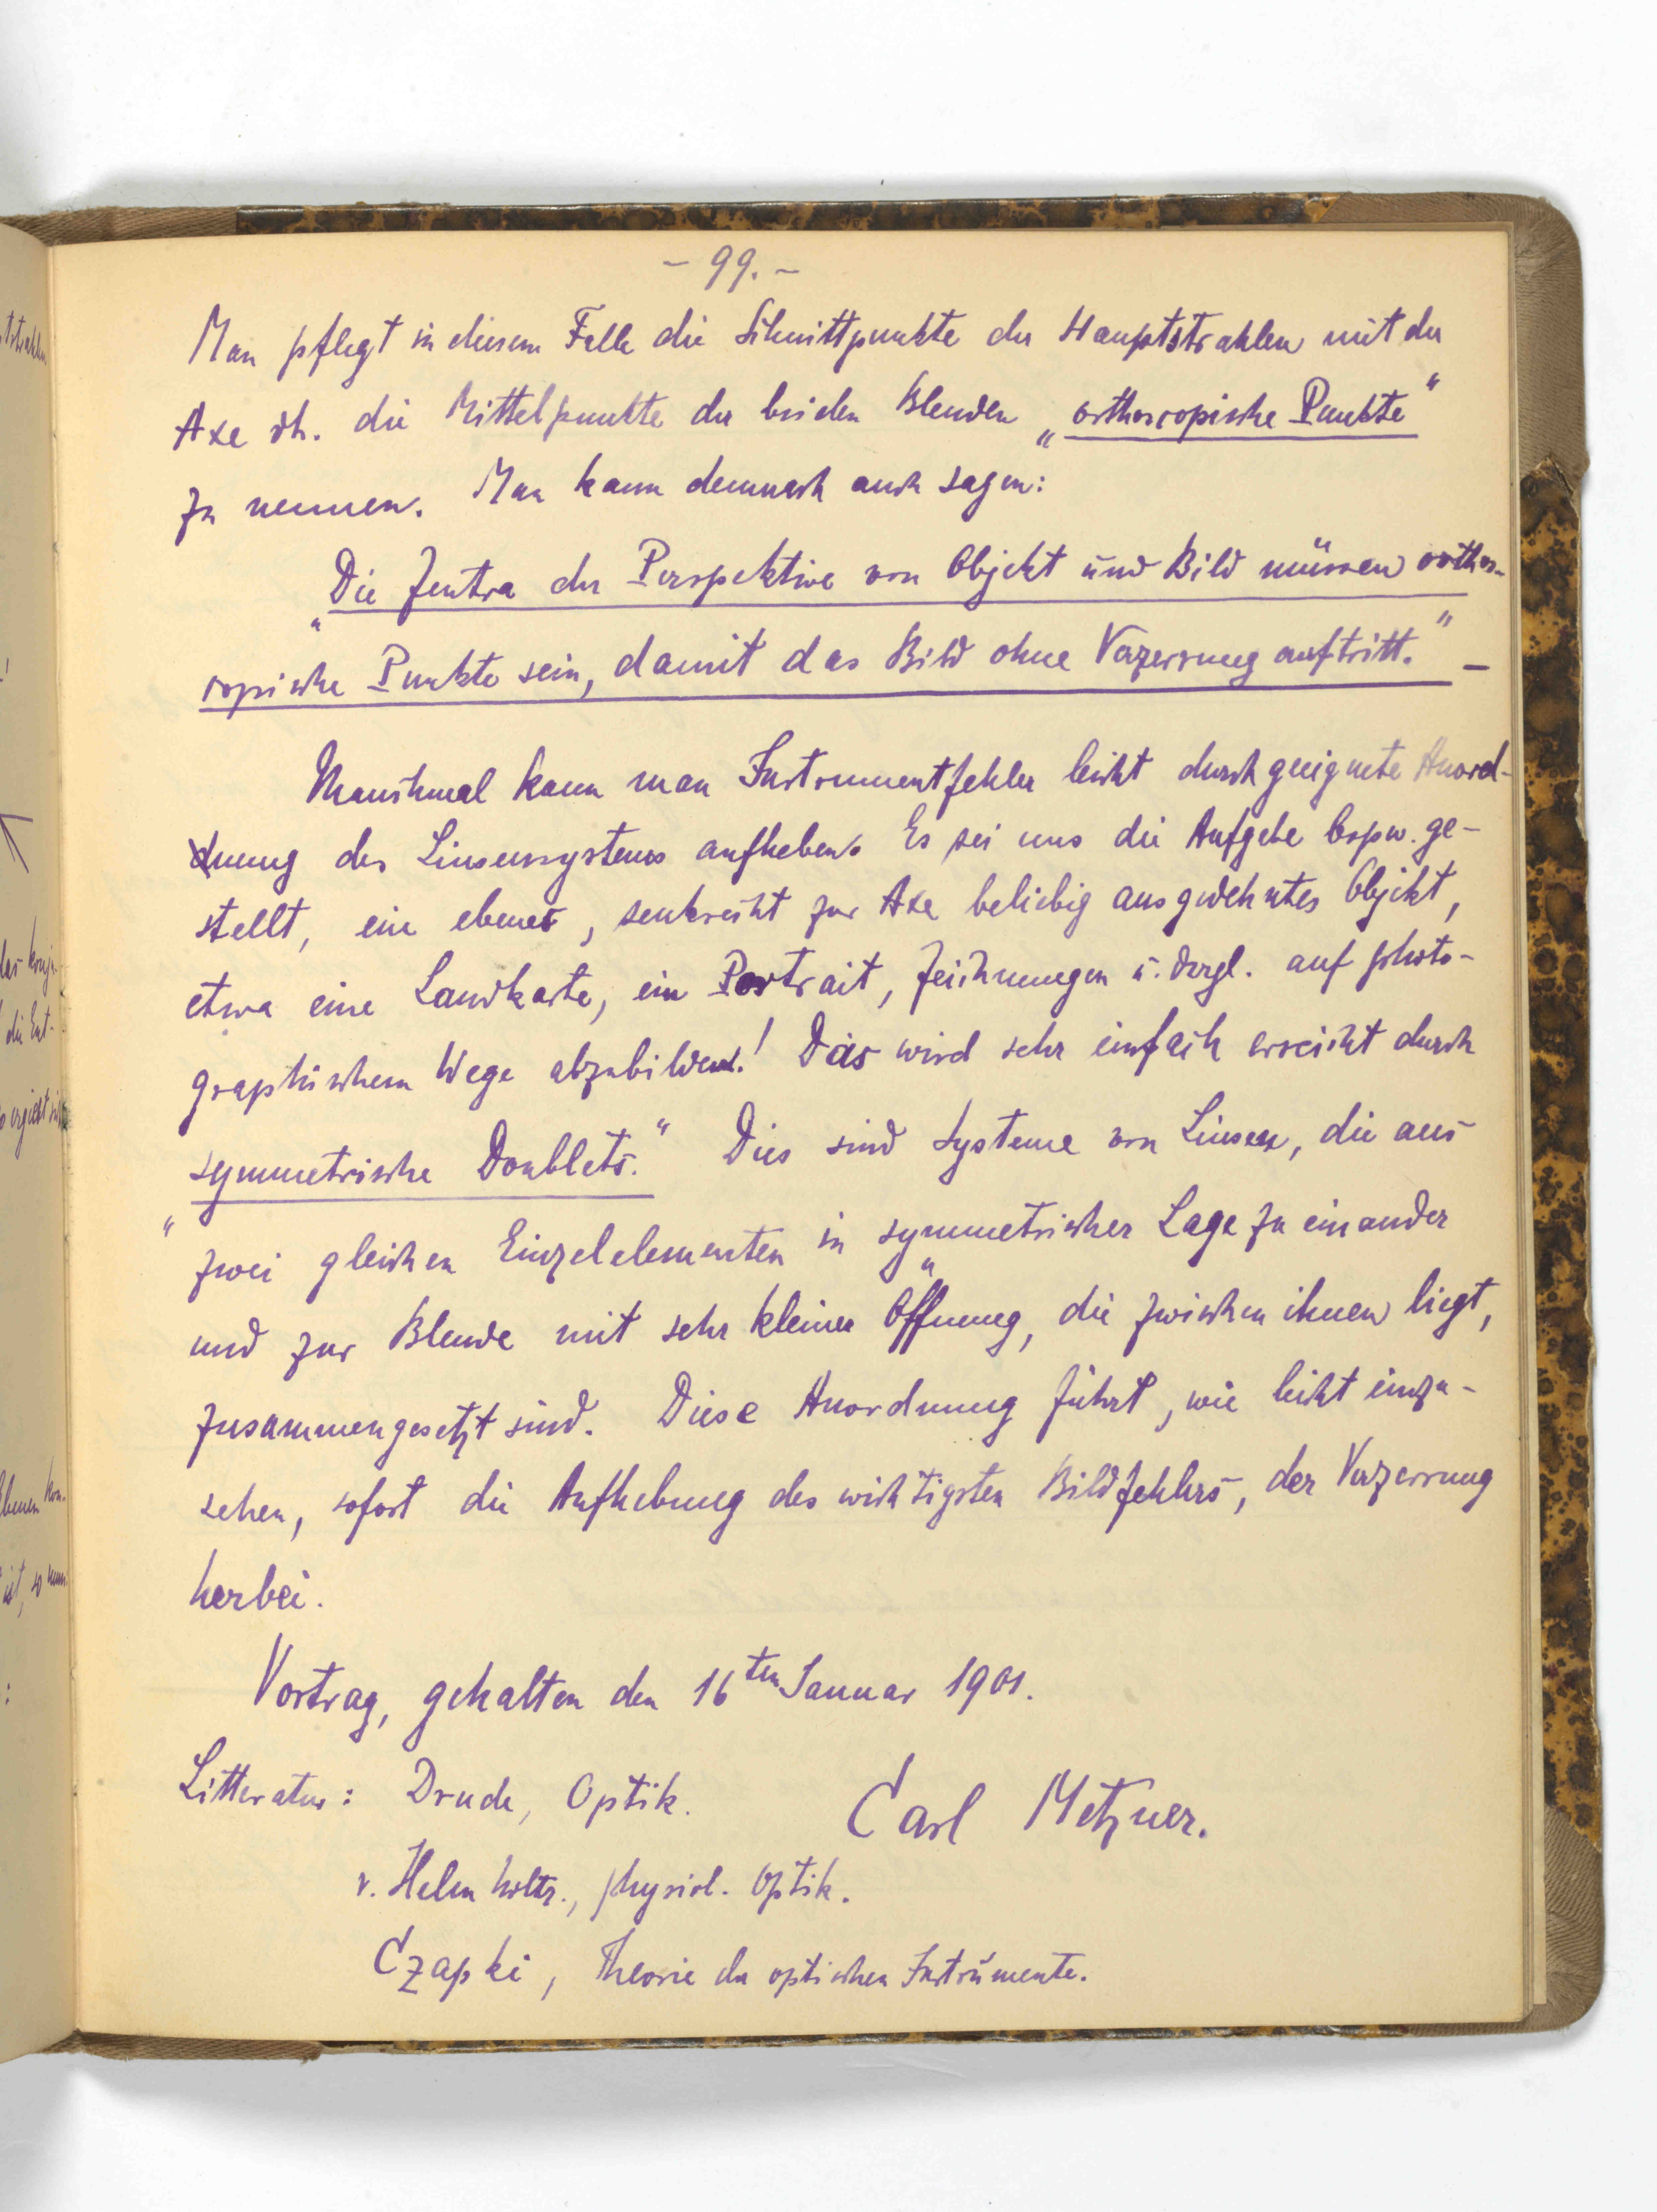 - 99. -
Man pflegt in diesem Falle die Schnittpunkte der Hauptstrahlen mit der
Axe dh. die Mittelpunkte der beiden Blenden „orthoscopische Punkte“
zu nennen. Man kann demnach auch sagen:
„Die Zentra der Perspektive von Objekt und Bild müssen orthos-
copische Punkte sein, damit das Bild ohne Verzerrung auftritt.“ —
Manchmal kann man Instrumentfehler leicht durch geeignete Anord-
nung des Linsensystems aufheben. Es sei uns die Aufgabe bspw. ge-
stellt, ein ebenes, senkrecht zur Axe beliebig ausgedehntes Objekt,
etwa eine Landkarte, ein Portrait, Zeichnungen u. dergl. auf photo-
graphischem Wege abzubilden! Das wird sehr einfach erreicht durch
„symmetrische Doublets.“ Dies sind Systeme von Linsen, die aus
zwei gleichen Einzelelementen in symmetrischer Lage zu einander
und zur Blende mit sehr kleiner Öffnung, die zwischen ihnen liegt,
zusammengesetzt sind. Diese Anordnung führt, wie leicht einzu-
sehen, sofort die Aufhebung des wichtigsten Bildfehlers, der Verzerrung
herbei.
Vortrag, gehalten den 16ten Januar 1901.
Litteratur: Drude, Optik.
Carl Metzner.
v. Helmholtz., physiol. Optik.
Czapki, Theorie der optischen Instrumente.